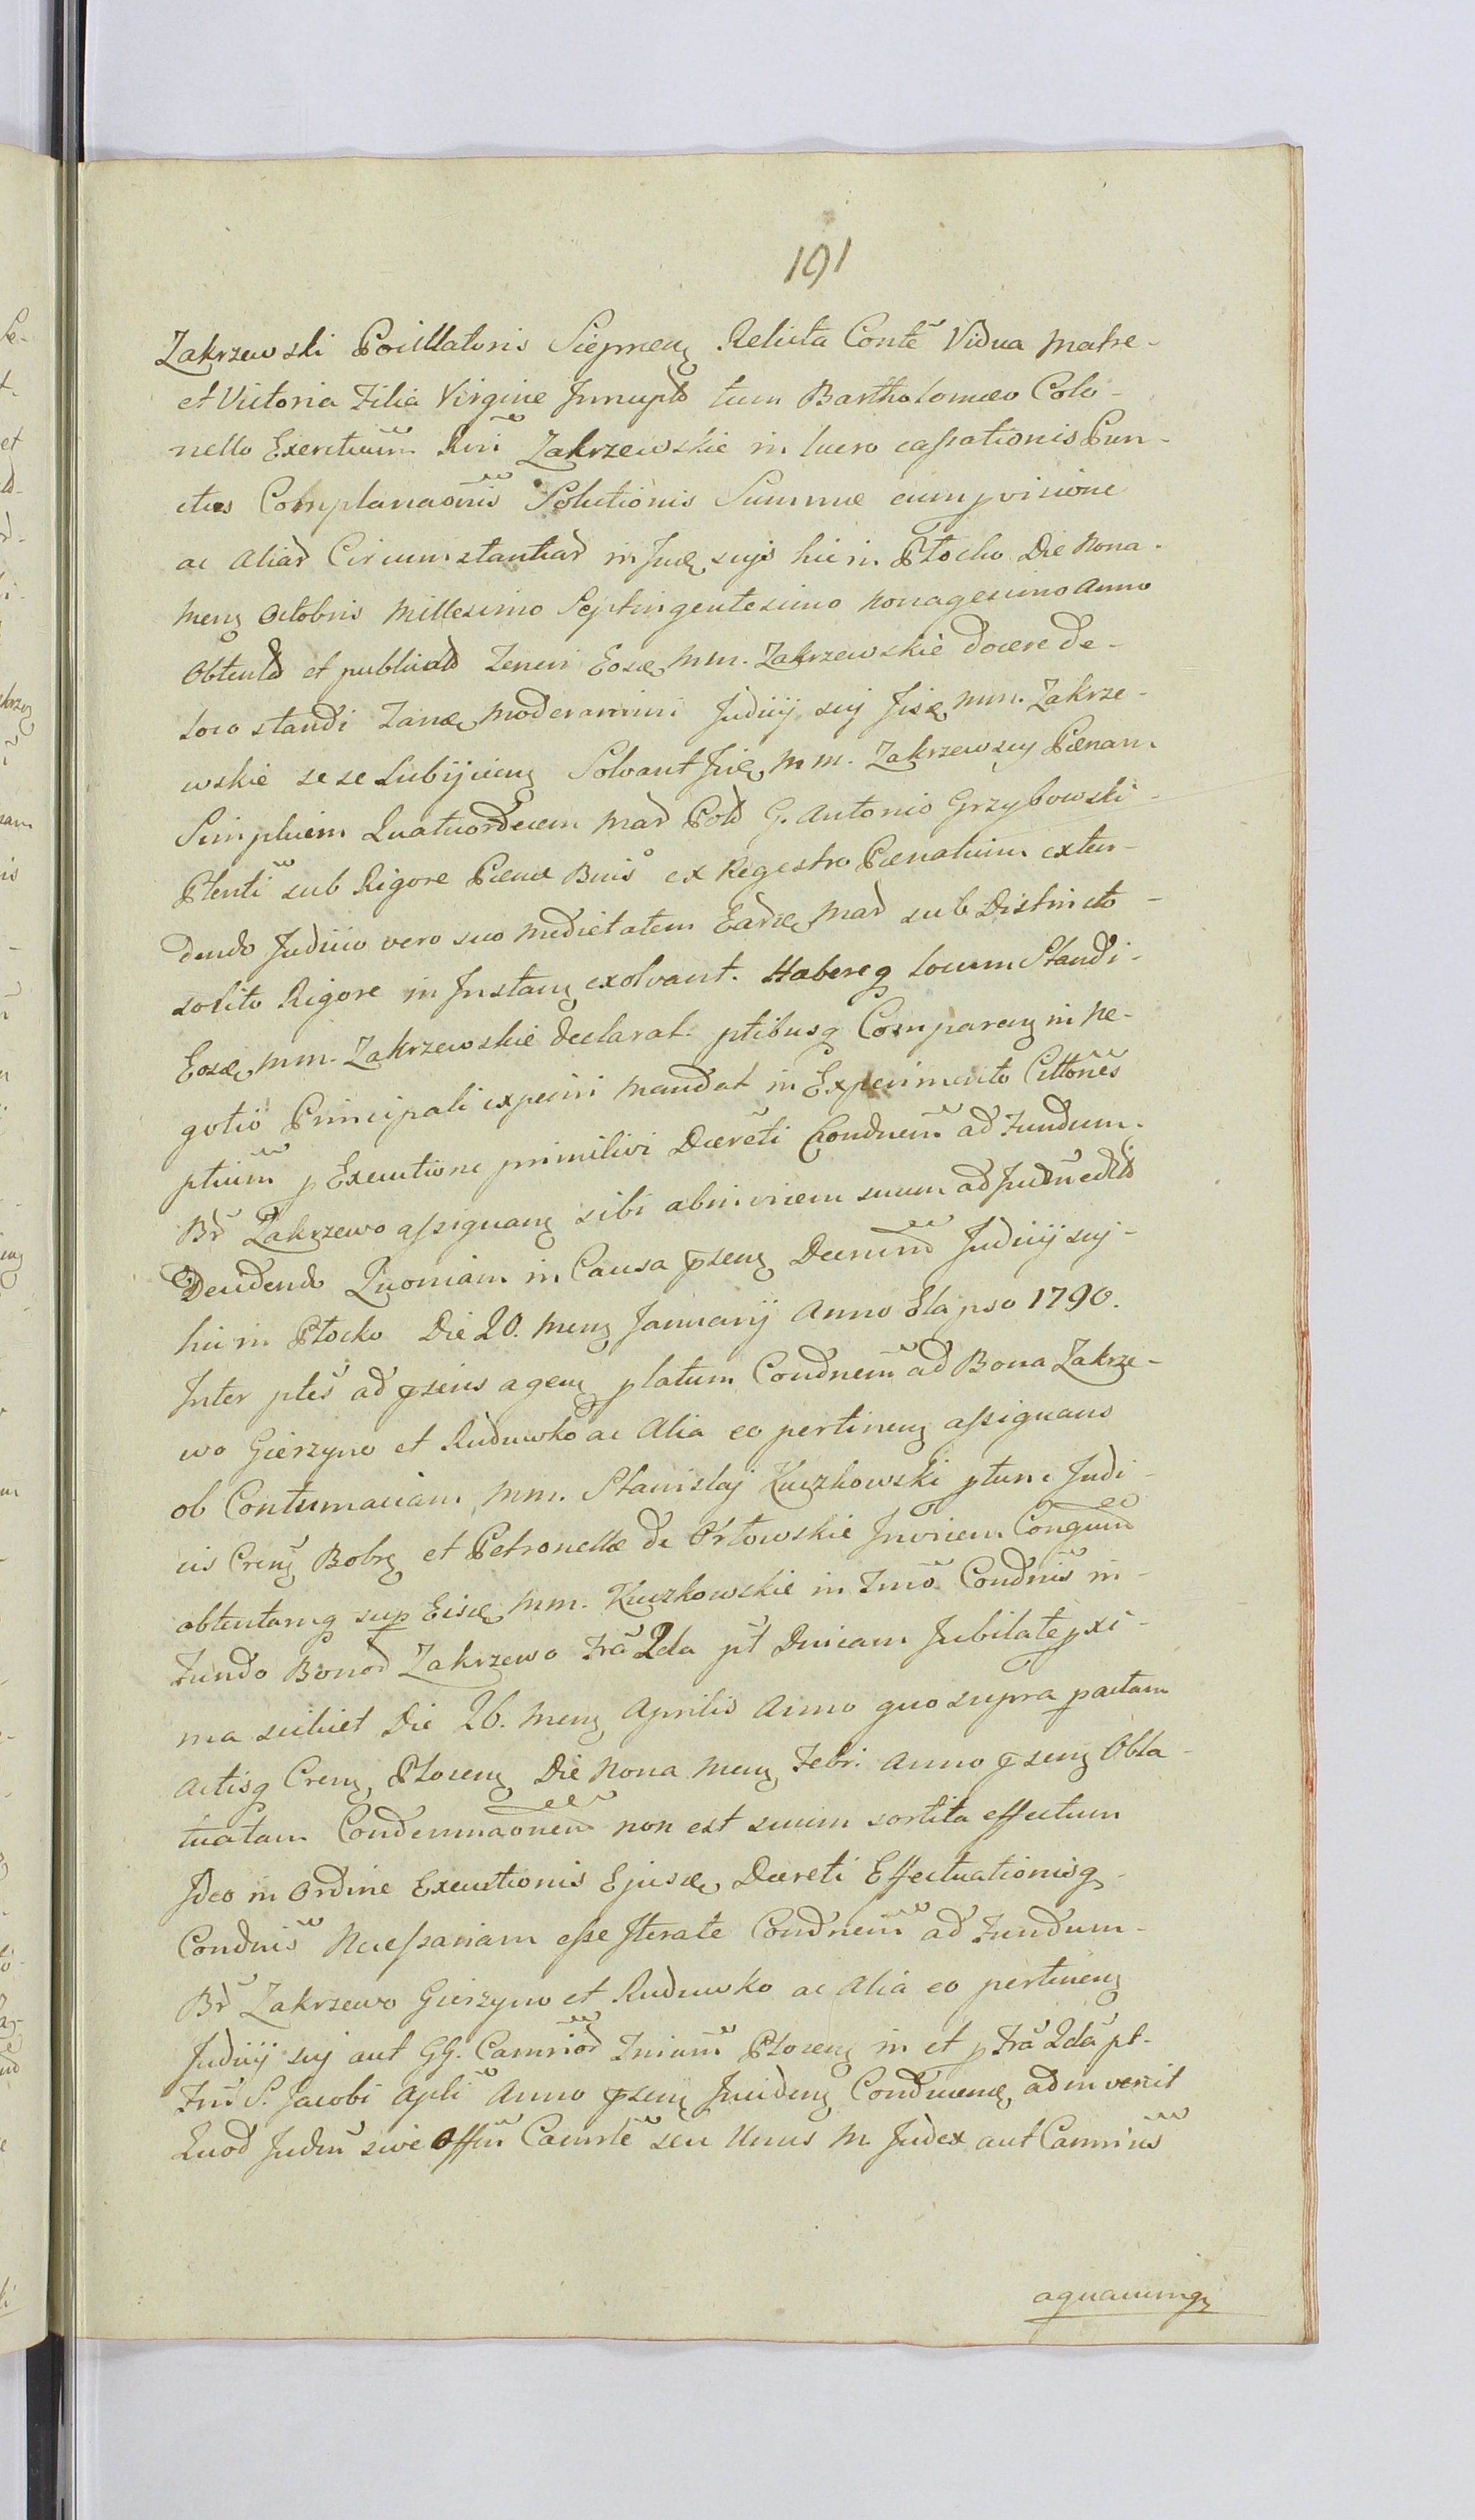 191
Zakrzewski Pocillatoris Siepnen Relicta Conte Vidua Matre-
et Victoria Filia Virgine Innupta tum Bartholomæo Colo-
nello Exercituum Rni Zakrzewskie in lucro cassationis Pun-
ctus Complanaonis Solutionis Summæ cum pvisione
ac Aliar Circumstantiar in Jud sujs hic in Płocko Die Nona
Men Octobris Millesimo Septingentesimo Nonagesimo Anno
Obtent et publicat Teneri Eosd MM. Zakrzewskie docere de-
loco standi Tand Moderamini Judicij suj Jisd MM. Zakrze-
wskie se se Subijcien Solvant Jid MM. Zakrzewscy Pænam
Simplicem Quatuordecem Mar Pol G. Antonio Grzybowski-
Ptenti sub Rigore Pænæ Bnis ex Regestro Pænalium exten-
dendo Judicio vero suo medietatem Eard Mar sub Districto-
solito Rigore in Instan exolvant. Habereq locum Standi-
Eosd MM. Zakrzewskie declarat ptibusq Comparen in ne-
gotio Principali experiri mandat in Experimento Cittones
ptium p Executione primitivi Decreti Condnem ad Fundum
Br Zakrzewo assignan sibi abinvicem suum ad Judm edit
Decidendo Quoniam in Causa psen Decretum Judicij suj-
hic in Płocko Die 20. Men Januarij Anno Elapso 1790.
Inter ptes ad psens agen platum Condnem ad Bona Zakrze-
wo Gierzyno et Rudowko ac Alia eo pertinen assignans
ob Contumaciam MM. Stanislaj Kuczkowski ptunc Judi-
cis Cren Bobr et Petronellæ de Orłowskie Invicem Congum
obtentamq sup Eisd MM. Kuczkowskie in Tmo Condnis in-
Fundo Bonor Zakrzewo Fra 2da pt Dnicam Jubilate pxi-
ma scilicet Die 26. Men Aprilis Anno quo supra pactam
Actisq Cren Płocen Die Nona Men Febr. Anno psen Obla-
tuatam Condemnaonem non est suum sortita effectum
Ideo in Ordine Executionis Ejusd Decreti Effectuationisq
Condnis Necessariam esse Iterate Condnem ad Fundum-
Br Zakrzewo Gierzyno et Rudowko ac Alia eo pertinen
Judicij suj aut GG. Camrior Tnium Płocen in et p Fra 2da pt-
Fm S. Jacobi Apli Anno psen Inciden Conducend adinvenit
Quod Judm sive Offm Camrle seu Unus M. Judex aut Camrius